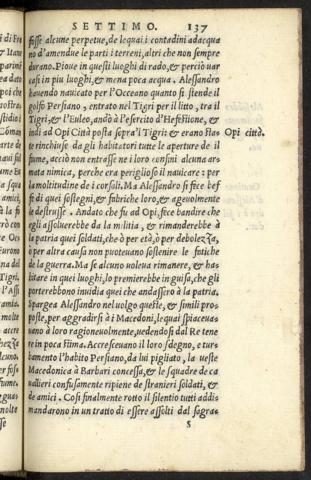 SETTIMO. 137
fosse alcune perpetue, de le quai i contadini adacqua
no d'amendue le parti i terreni, altri che non sempre
durano. Pioue in questi luoghi di rado, & perciò uar
casi in piu luoghi, & mena poca acqua. Alessandro
hauendo nauicato per l'Occeano quanto si stende il
golfo Persiano, entrato nel Tigri per il litto, tra il
Tigri, & l'Euleo, andò à l'esercito d'Hefestione, &
indi ad Opi Città posta sopra'l Tigri: & erano sta-
Opi città.
te rinchiuse da gli habitatori tutte le aperture de il
fiume, acciò non entrasse ne i loro confini alcuna ar
mata nimica, perche era periglioso il nauicare: per
la moltitudine de i corsali. Ma Alessandro si fece bef
fe di quei sostegni, & fabriche loro, & ageuolmente
le destrusse. Andato che fu ad Opi, fece bandire che
egli assoluerebbe da la militia, & rimanderebbe à
la patria quei soldati, che ò per età, ò per debolezza,
ò per altra causa non poteuano sostenire le fatiche
de la guerra. Ma se alcuno voleua rimanere, & ha-
bitare in quei luoghi, lo premierebbe in guisa, che gli
porterebbono inuidia quei che andassero à la patria.
Spargea Alessandro nel uolgo queste, & simili pro-
poste, per aggradirsi à i Macedoni, le quai spiaceua-
uano à loro ragioneuolmente, uedendosi dal Re tene
re in poca stima. Accresceuano il loro sdegno, e tur-
bamento l'habito Persiano, da lui pigliato, la ueste
Macedonica à Barbari concessa, & le squadre de ca
uallieri confusamente ripiene de stranieri soldati, &
de amici. Cosi finalmente rotto il silentio tutti addi-
mandarono in un tratto di essere assolti dal sagra-
S